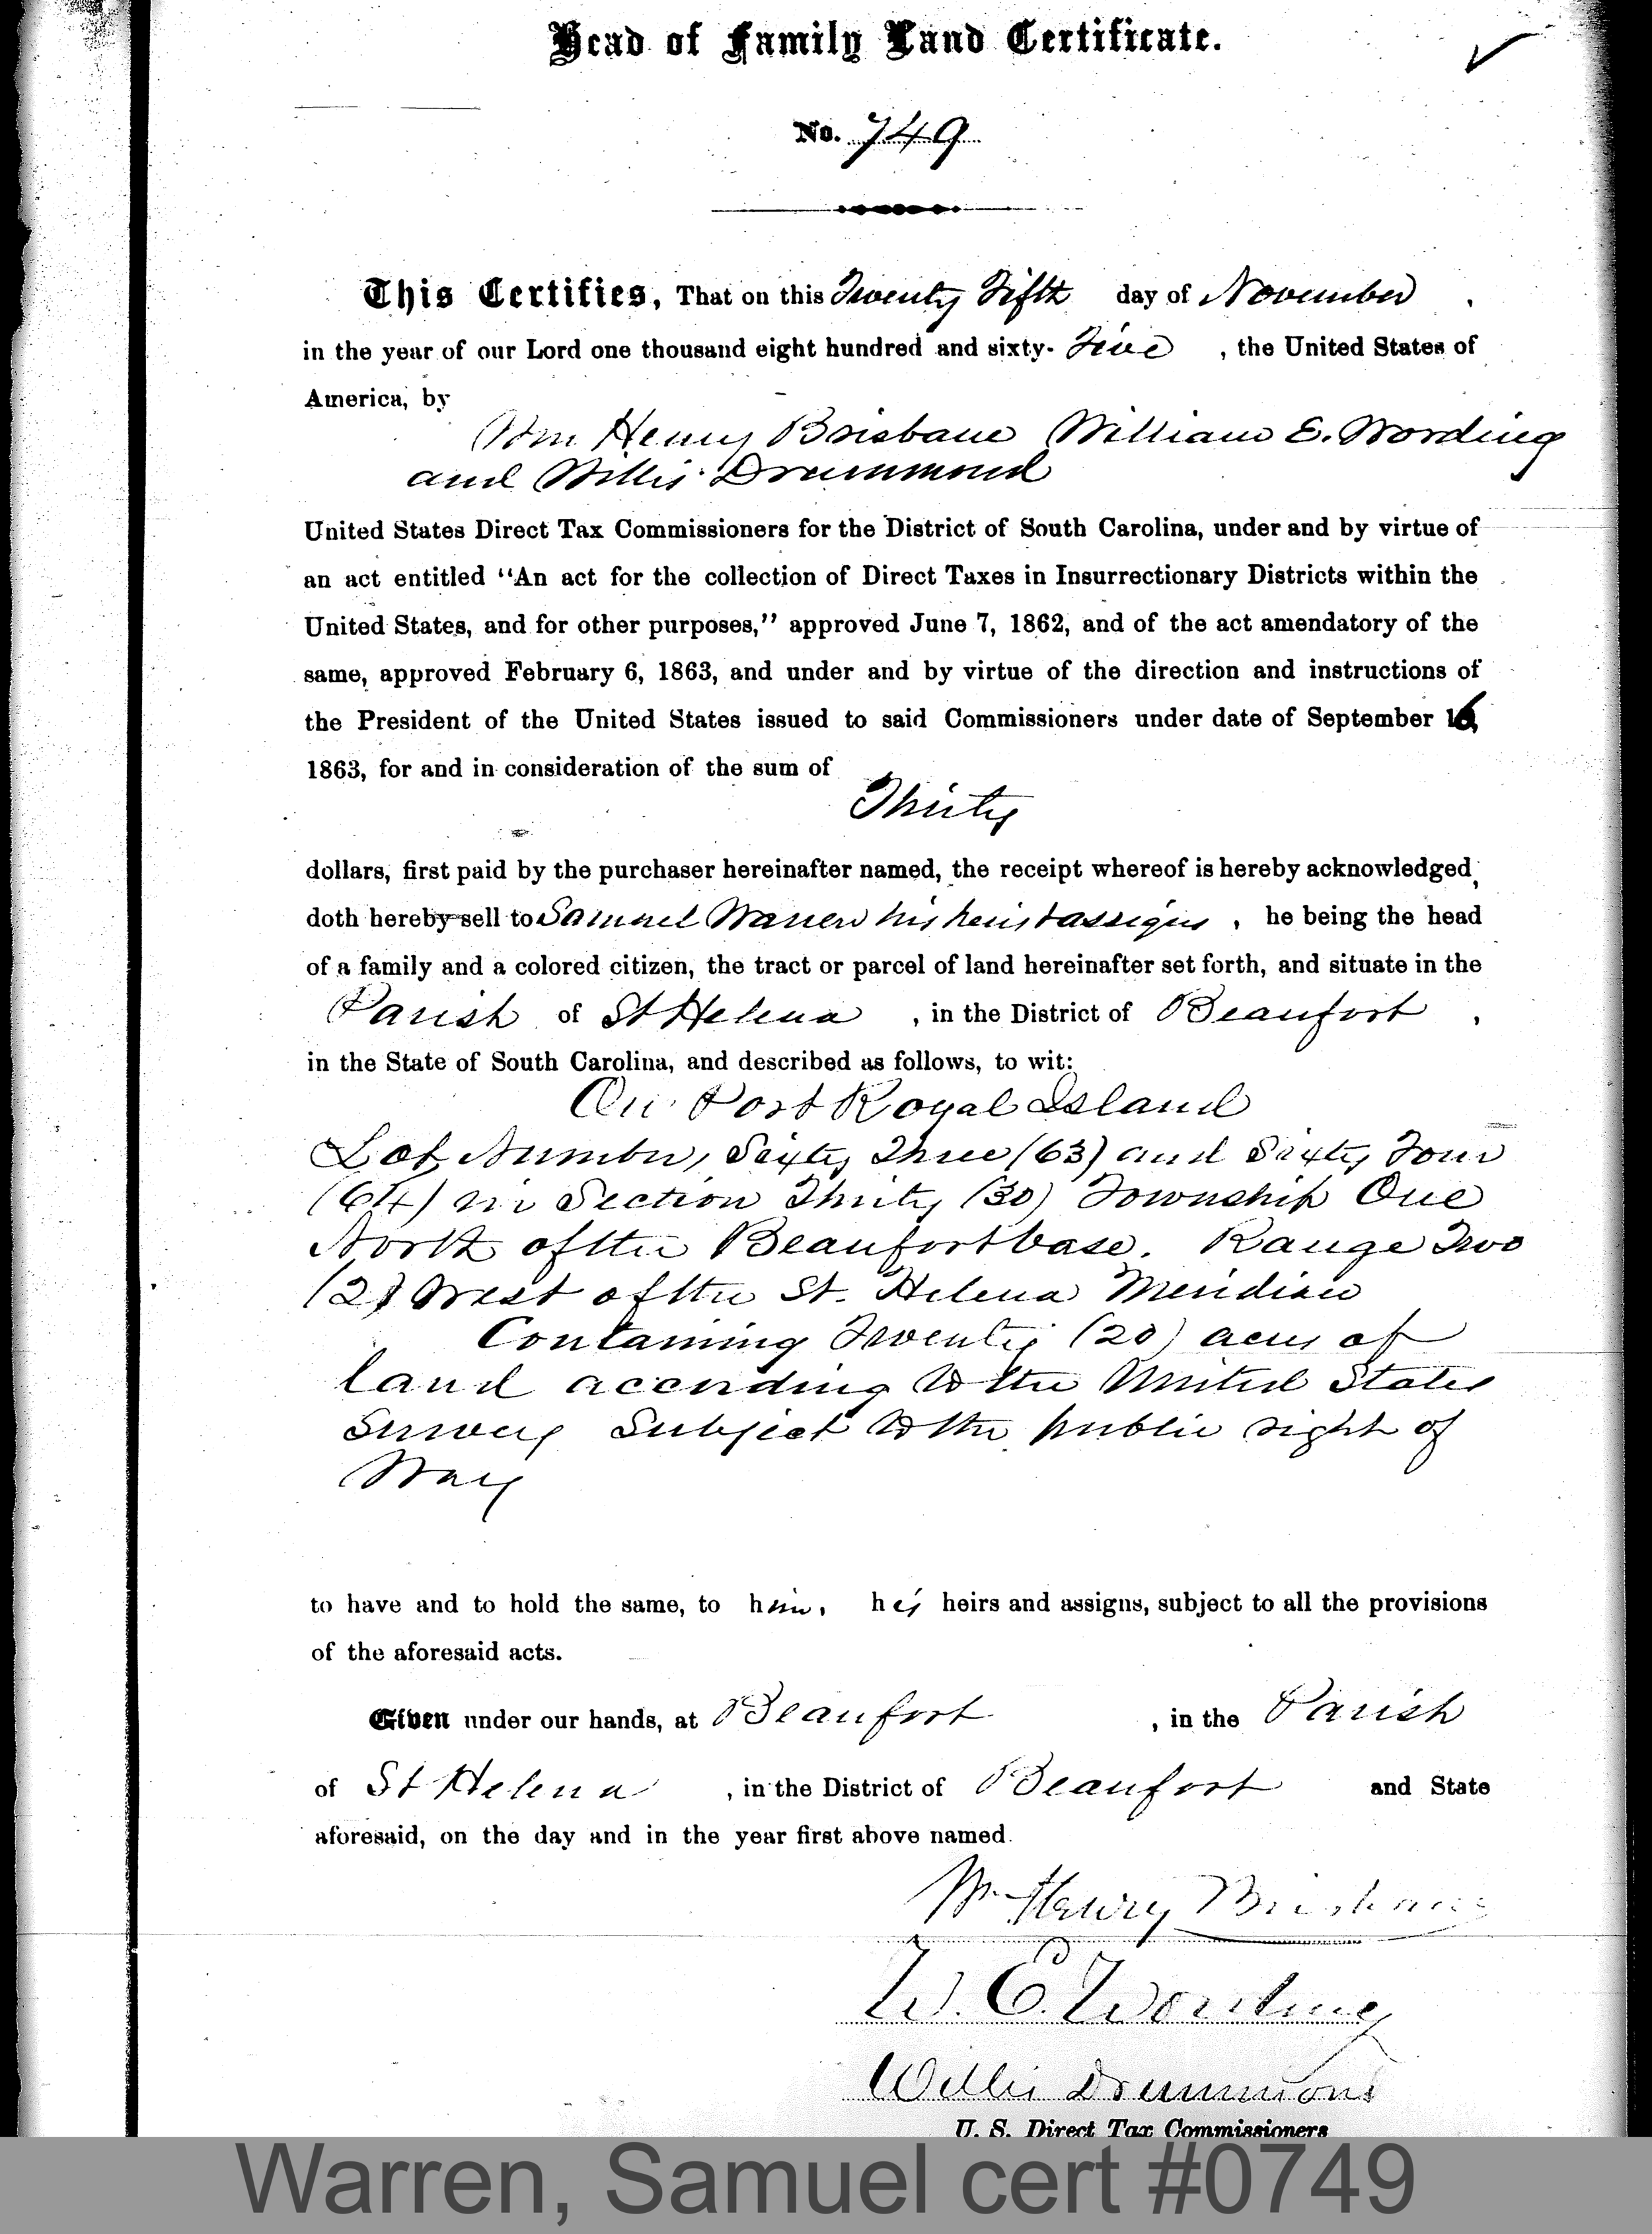 Head of Family Land Certificate.
No. 749
This Certifies, That on this Twenty Fifth day of November,
in the year of our Lord one thousand eight hundred and sixty-Five, the United States of
America, by
Wm Henry Brisbane William E. Wording
and Willis Drummond
United States Direct Tax Commissioners for the District of South Carolina, under and by virtue of
an act entitled "An act for the collection of Direct Taxes in Insurrectionary Districts within the
United States, and for other purposes," approved June 7, 1862, and of the act amendatory of the
same, approved February 6, 1863, and under and by virtue of the direction and instructions of
the President of the United States issued to said Commissioners under date of September 16,
1863, for and in consideration of the sum of
Thirty
dollars, first paid by the purchaser hereinafter named, the receipt whereof is hereby acknowledged,
doth hereby sell to Samuel Warren his heirs & assigns, he being the head
of a family and a colored citizen, the tract or parcel of land hereinafter set forth, and situate in the
Parish of St Helena, in the District of Beaufort,
in the State of South Carolina, and described as follows, to wit:
On Port Royal Island
Lot Numbers Sixty Three (63) and Sixty Four
(64) in Section Thirty (30) Township One
North of the Beaufort base. Range Two
(2) West of the St. Helena Meridian
Containing Twenty (20) acres of
land according to the United States
Survey Subject to the public right of
Way
to have and to hold the same, to him, his heirs and assigns, subject to all the provisions
of the aforesaid acts.
Given under our hands, at Beaufort, in the Parish
of St Helena, in the District of Beaufort and State
aforesaid, on the day and in the year first above named.
Wm Henry Brisbane
W. E. Wording
Willis Drummond
U. S. Direct Tax Commissioners
Warren, Samuel cert #0749